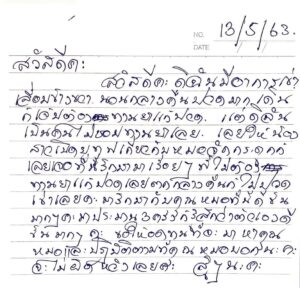 NO.
DATE
13/5/63.
สวัสดีค่ะ
สวัสดีค่ะ ดิฉันมีอาการเข่า
เสื่อมข้างขวา นอนกลางคืนปวดมาก เดิน
ก็ไม่ได้ต้อง ทานยาแก้ปวด แต่ดิฉัน
เป็นคนไม่ชอบทานยาเลย เลยให้น้อง
เลยเจอที่นี่รักษา ที่ไม่ต้อง
ทานยาแก้ปวดเลย ตกกลางคืนก็ไม่ปวด
เข่าเลยค่ะ มารักษากับคุณหมอที่นี่ดีขึ้น
มากๆค่ะ มาประมาณ รู้สึกว่าตัวเองดี
ขึ้นมากๆ ค่ะ ขอให้อดทนที่จะ มาหาคุณ
หมอและปฏิบัติตามที่คุณหมอบอกนะคะ
จะไม่ผิดหวังเลยค่ะ สู้ๆ นะคะ